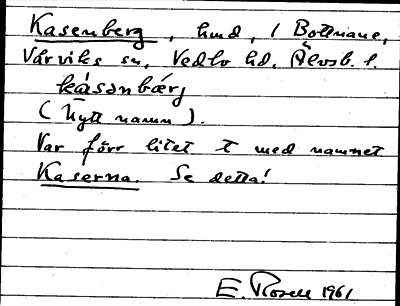 Kasenberg, hmd, i Bottnane,
Vårviks sn, Vedbo hd, Älvsb. l.
kásənbærj
(Nytt namn).
Var förr litet t med namnet
Kaserna. Se detta!
E. Rosell 1961